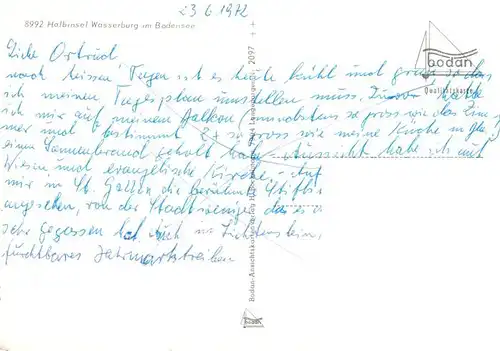 23.6.1972
8992 Halbinsel Wasserburg im Bodensee
Liebe Ortrud,
nach heissen Tagen ist es heute kühl und grau so das
ich meinen Tagesplan umstellen muss. Zuvor hatte
ich mir auf meinen Balkon (mindestens so gross wie das Zim
mer und bestimmt 2+ so gross wie meine Küche in
einen Sonnenbrand geholt habe. Aussicht habe ich auf
Wiesen und evangelische Kirche. Auf
mir in St. Gallen die berühmte Stiftsb
angesehen, von der Stadt weniger das es a
sehr gegossen hat. Auch in Lichtenstein,
furchtbares Jahrmarktstreiben
bodan
Qualitätskarten
2097
Bodan-Ansichtskartenverlag